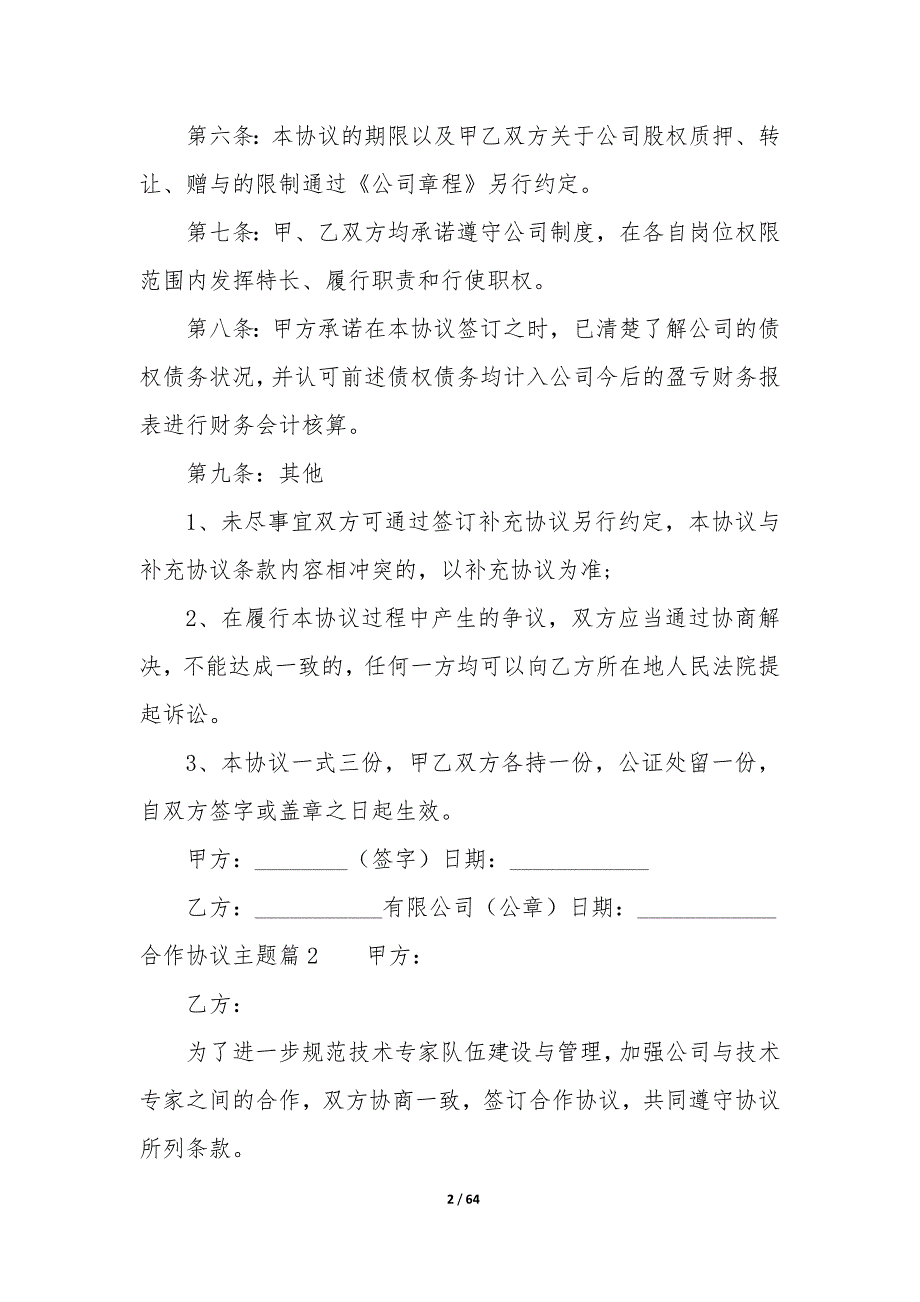 第六条：本协议的期限以及甲乙双方关于公司股权质押、转
让、赠与的限制通过《公司章程》另行约定。
第七条：甲、乙双方均承诺遵守公司制度，在各自岗位权限
范围内发挥特长、履行职责和行使职权。
第八条：甲方承诺在本协议签订之时，已清楚了解公司的债
权债务状况，并认可前述债权债务均计入公司今后的盈亏财务报
表进行财务会计核算。
第九条：其他
1、未尽事宜双方可通过签订补充协议另行约定，本协议与
补充协议条款内容相冲突的，以补充协议为准;
2、在履行本协议过程中产生的争议，双方应当通过协商解
决，不能达成一致的，任何一方均可以向乙方所在地人民法院提
起诉讼。
3、本协议一式三份，甲乙双方各持一份，公证处留一份，
自双方签字或盖章之日起生效。
甲方：________（签字）日期：____________
乙方：___________有限公司（公章）日期：____________
合作协议主题篇2　　甲方：
乙方：
为了进一步规范技术专家队伍建设与管理，加强公司与技术
专家之间的合作，双方协商一致，签订合作协议，共同遵守协议
所列条款。
2 / 64